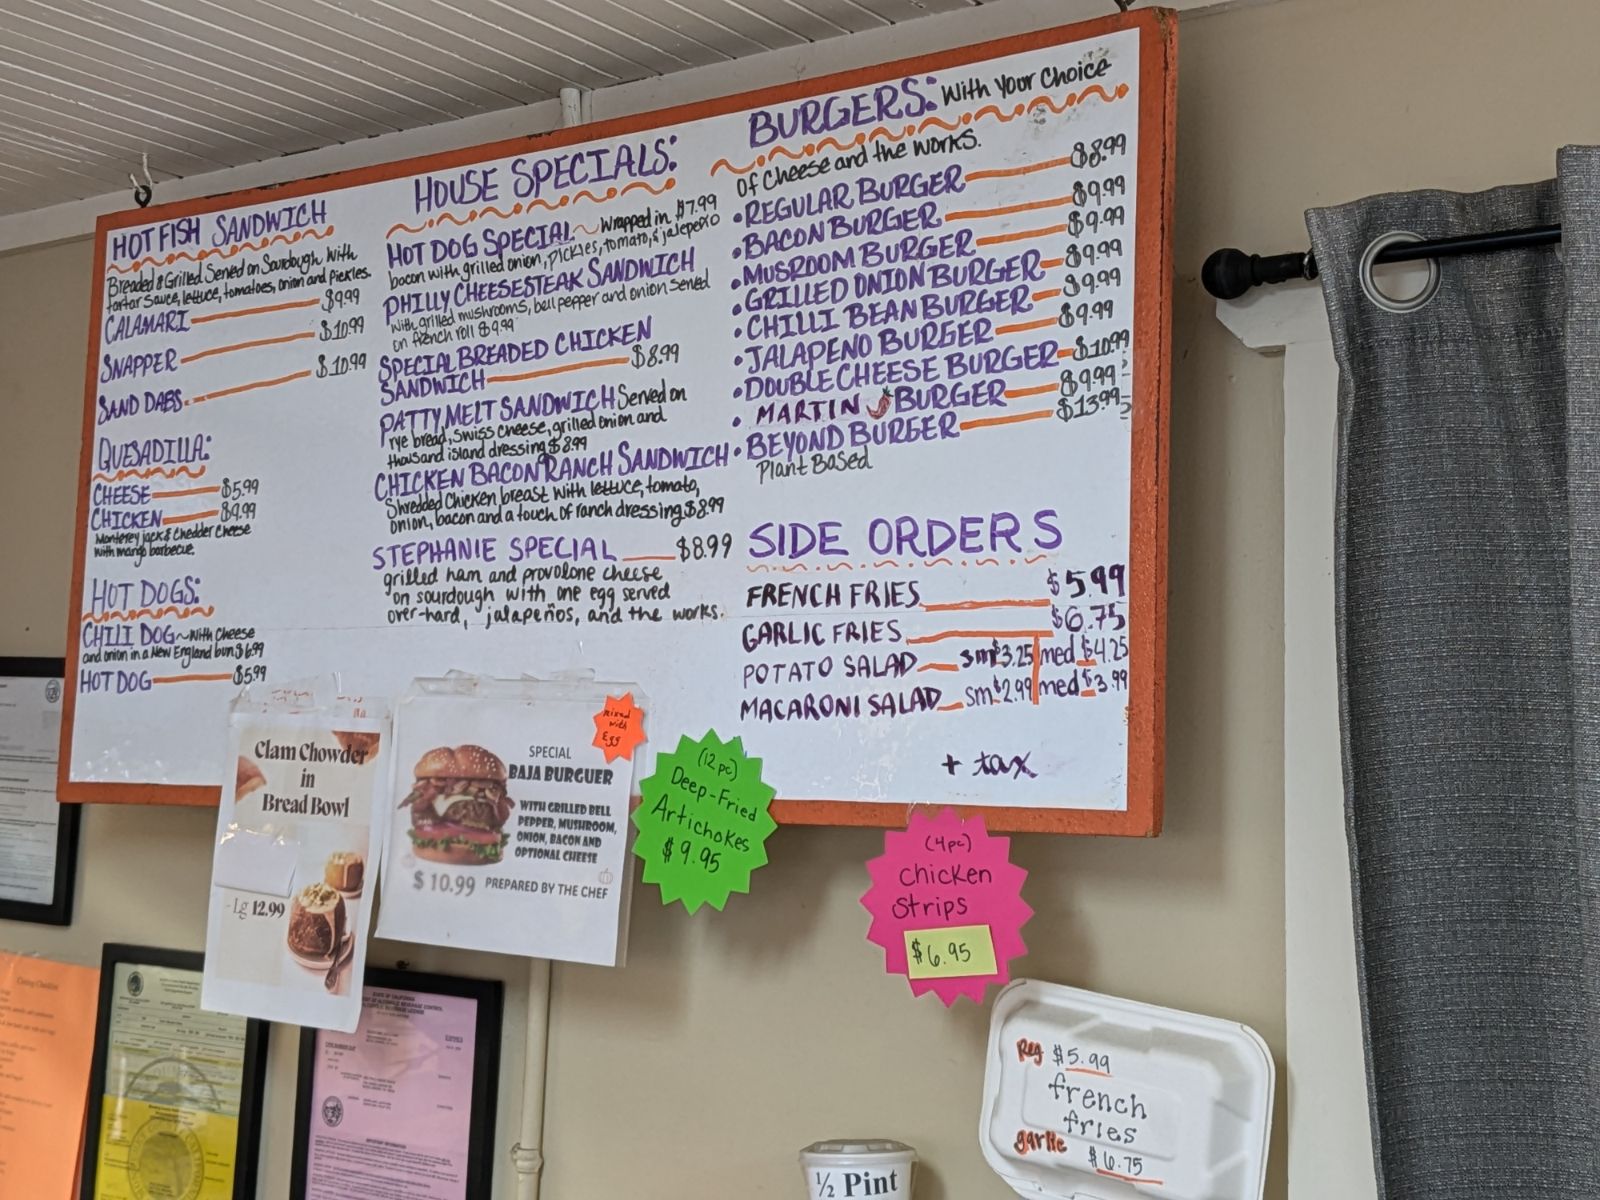 HOT FISH SANDWICH
Breaded & Grilled Served on Sourdough with
tartar sauce, lettuce, tomatoes, onion and pickles.
CALAMARI $9.99
SNAPPER $10.99
SAND DABS $10.99
QUESADILLA:
CHEESE $5.99
CHICKEN $9.99
Monterey jack & Chedder Cheese
with mango barbecue
HOT DOGS:
CHILI DOG ~ with Cheese
and onion in a New England bun $6.99
HOT DOG $5.99
HOUSE SPECIALS:
HOT DOG SPECIAL ~ Wrapped in $7.99
bacon with grilled onion, pickles, tomato, & jalepeño
PHILLY CHEESESTEAK SANDWICH
with grilled mushrooms, bell pepper and onion served
on french roll $9.99
SPECIAL BREADED CHICKEN
SANDWICH $8.99
PATTY MELT SANDWICH Served on
rye bread, swiss cheese, grilled onion and
thousand island dressing $8.99
CHICKEN BACON RANCH SANDWICH
Shredded Chicken breast with lettuce, tomato,
onion, bacon and a touch of ranch dressing $8.99
STEPHANIE SPECIAL $8.99
grilled ham and provolone cheese
on sourdough with one egg served
over-hard, jalapeños, and the works.
BURGERS: With Your Choice
of Cheese and the works.
• REGULAR BURGER $8.99
• BACON BURGER $9.99
• MUSROOM BURGER $9.99
• GRILLED ONION BURGER $9.99
• CHILLI BEAN BURGER $9.99
• JALAPENO BURGER $9.99
• DOUBLE CHEESE BURGER $10.99
• MARTIN BURGER $9.99
• BEYOND BURGER $13.99
Plant Based
SIDE ORDERS
FRENCH FRIES $5.99
GARLIC FRIES $6.75
POTATO SALAD sm $3.25 med $4.25
MACARONI SALAD sm $2.99 med $3.99
+ tax
Clam Chowder
in
Bread Bowl
- Lg 12.99
mixed
with
Egg
SPECIAL
BAJA BURGUER
WITH GRILLED BELL
PEPPER, MUSHROOM,
ONION, BACON AND
OPTIONAL CHEESE
$ 10.99 PREPARED BY THE CHEF
(12 pc)
Deep-Fried
Artichokes
$ 9.95
(4pc)
Chicken
Strips
$6.95
Reg $5.99
french
fries
garlic
$6.75
½ Pint
STATE OF CALIFORNIA